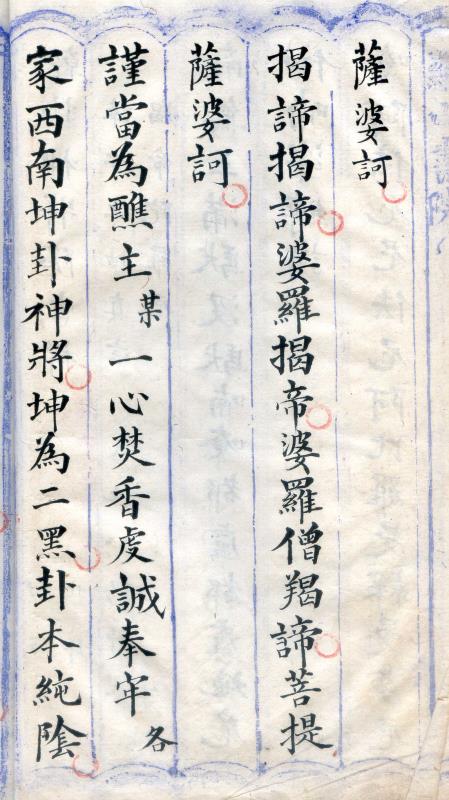 薩婆訶
揭諦揭諦婆羅揭帝婆羅僧羯諦菩提
薩婆訶
謹當為醮主某一心焚香虔誠奉牢各
家西南坤卦神將坤為二黑卦本純陰